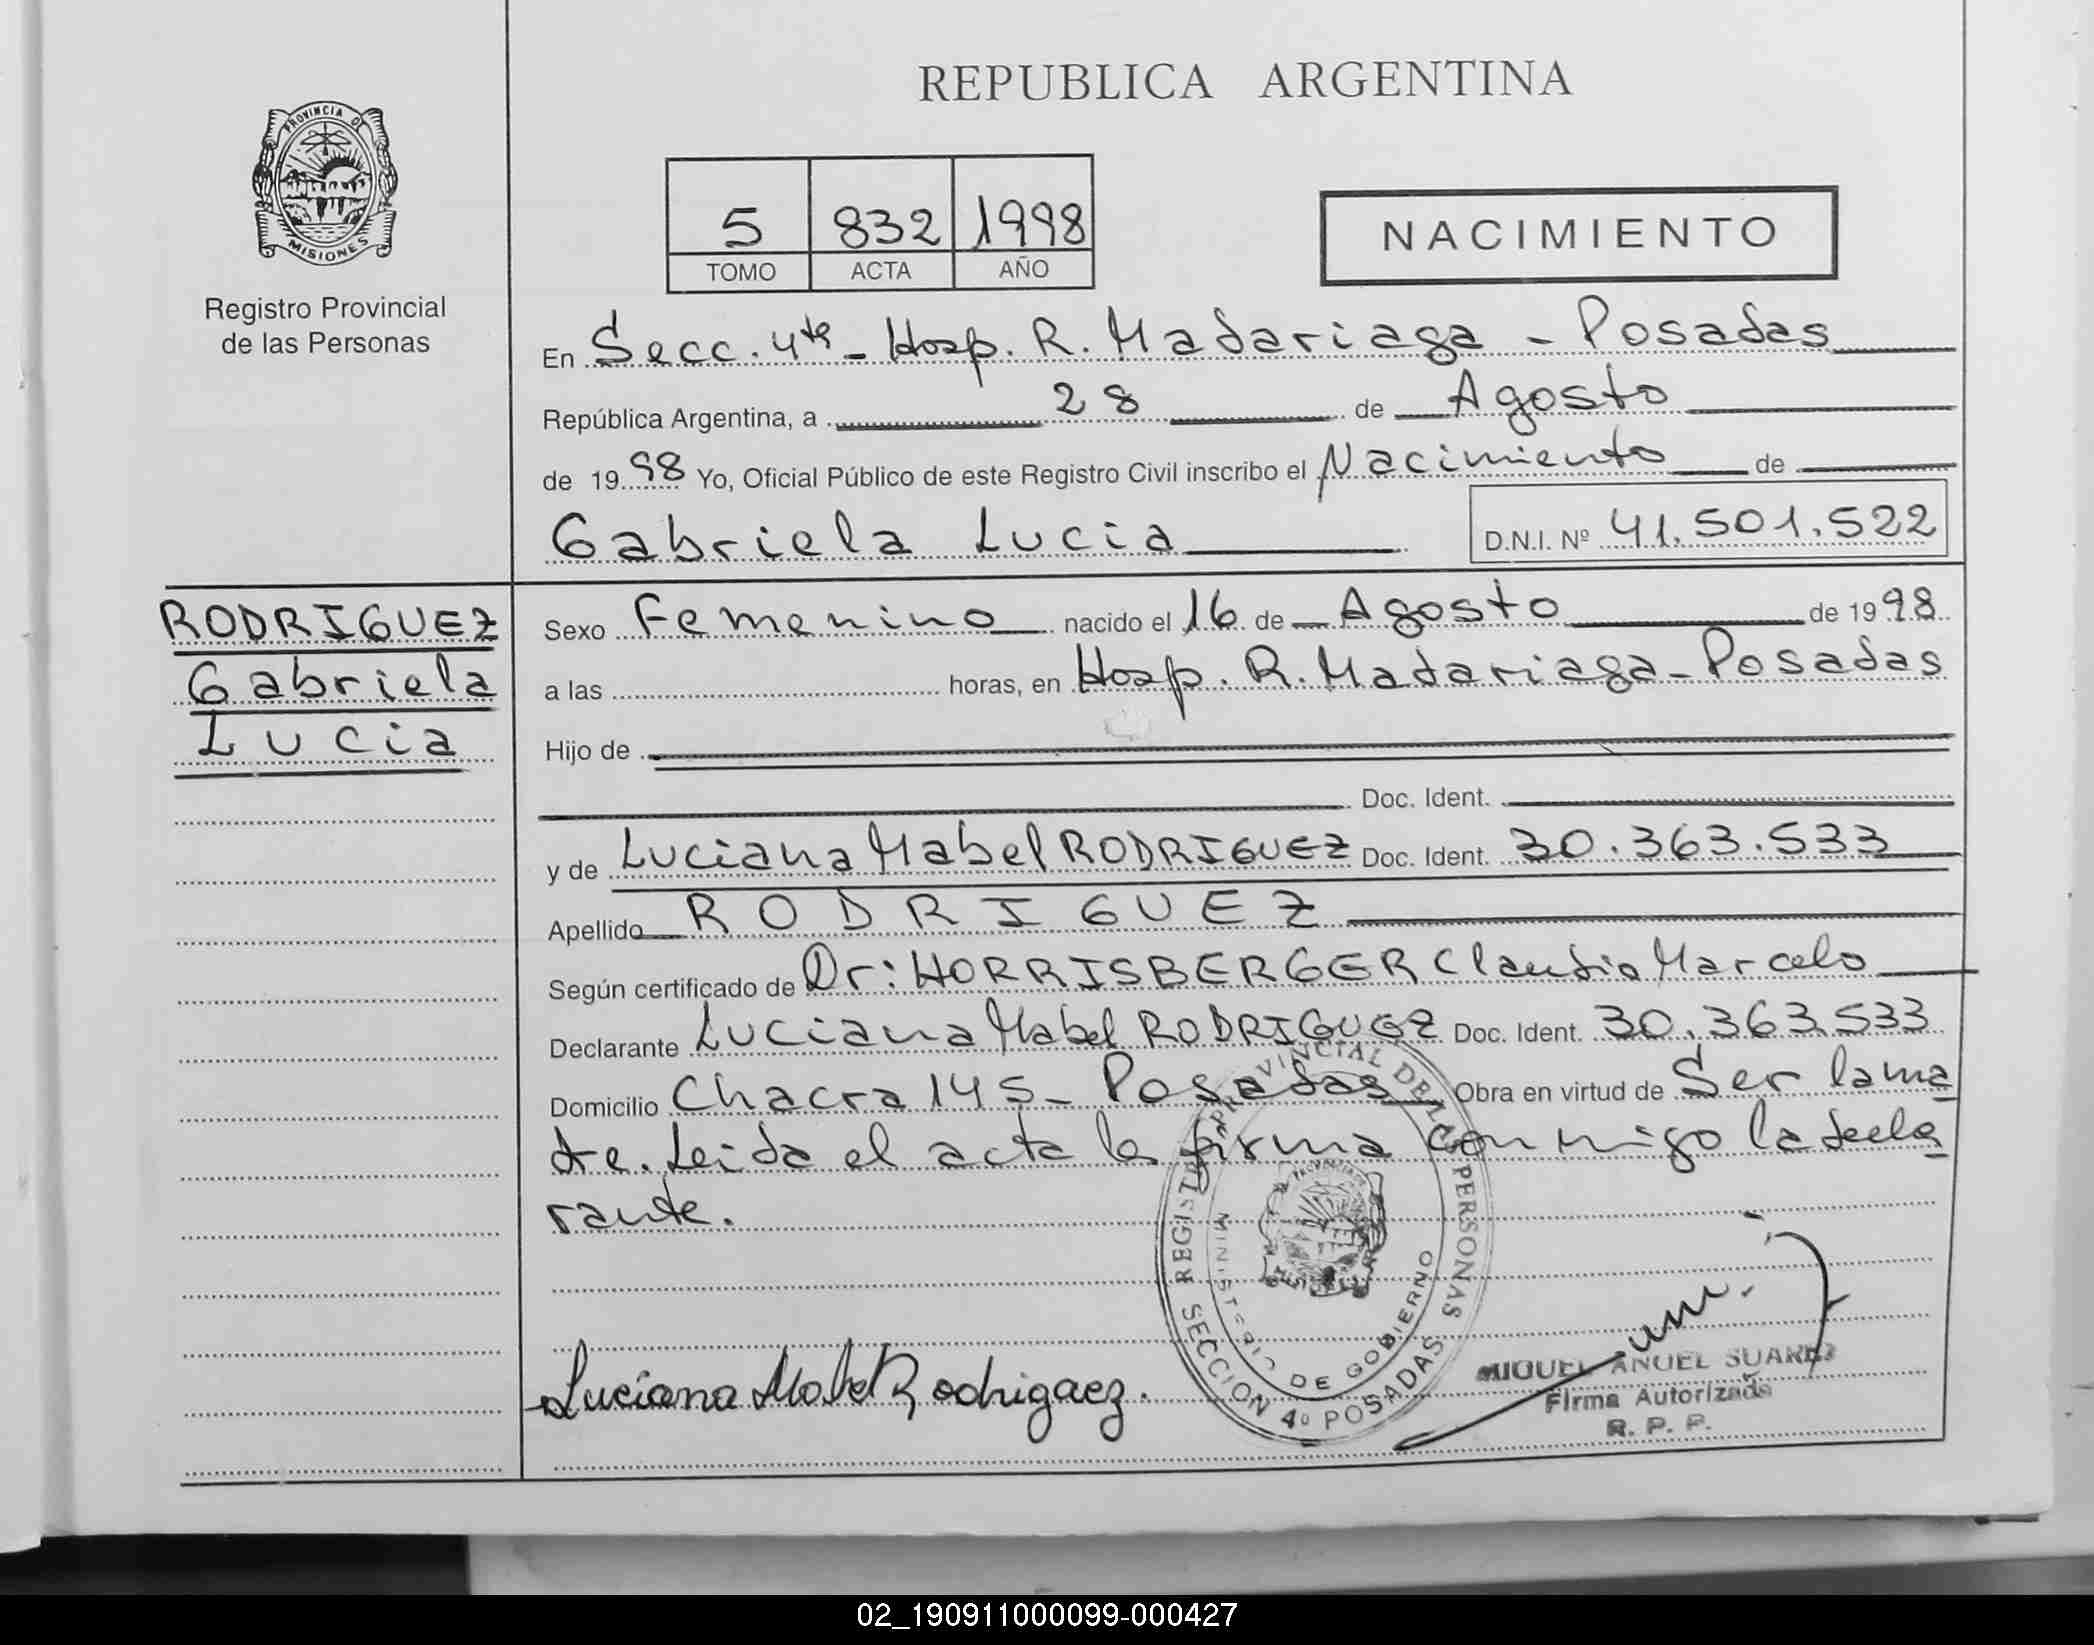 REPUBLICA ARGENTINA
PROVINCIA D
MISIONES
Registro Provincial
de las Personas
5 832 1998
TOMO ACTA AÑO
NACIMIENTO
En Secc. 4ta - Hosp. R. Madariaga - Posadas
República Argentina, a 28 de Agosto
de 19 98 Yo, Oficial Público de este Registro Civil inscribo el Nacimiento de
Gabriela Lucia D.N.I. Nº 41.501.522
RODRIGUEZ
Gabriela
Lucia
Sexo Femenino nacido el 16 de Agosto de 19 98
a las horas, en Hosp. R. Madariaga - Posadas
Hijo de
Doc. Ident.
y de Luciana Mabel RODRIGUEZ Doc. Ident. 30.363.533
Apellido RODRIGUEZ
Según certificado de Dr: HORRISBERGER Claudio Marcelo
Declarante Luciana Mabel RODRIGUEZ Doc. Ident. 30.363.533
Domicilio Chacra 145 - Posadas Obra en virtud de Ser la ma
dre. Leida el acta la firma conmigo la decla
rante.
REGISTRO PROVINCIAL DE LAS PERSONAS
MINISTERIO DE GOBIERNO
SECCION 4º POSADAS
Luciana Mabel Rodriguez.
MIGUEL ANGEL SUAREZ
Firma Autorizada
R. P. P.
02_190911000099-000427